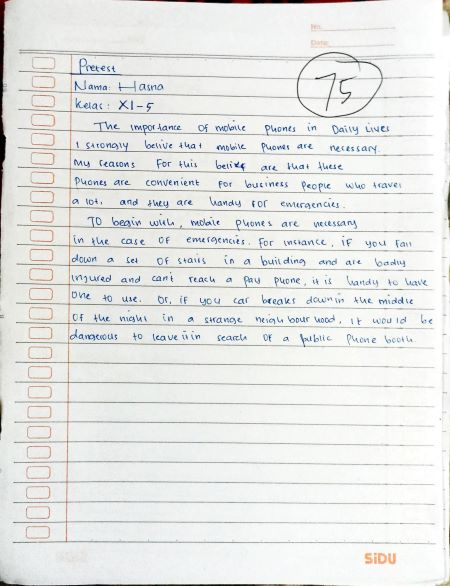 No:
Date:
Pretest
75
Nama: Hasna
Kelas: XI-5
The importance of mobile phones in Daily Lives
I strongly belive that mobile phones are necessary.
my reasons for this belief are that these
phones are convenient for business people who travel
a lot, and they are handy for emergencies.
To begin with, mobile phones are necessary
in the case of emergencies. For instance, if you fall
down a set of stairs in a building and are badly
injured and can't reach a pay phone, it is handy to have
one to use. Or, if you car breaks down in the middle
of the night in a strange neighbour hood, it would be
dangerous to leave it in search of a public phone booth.
SiDU